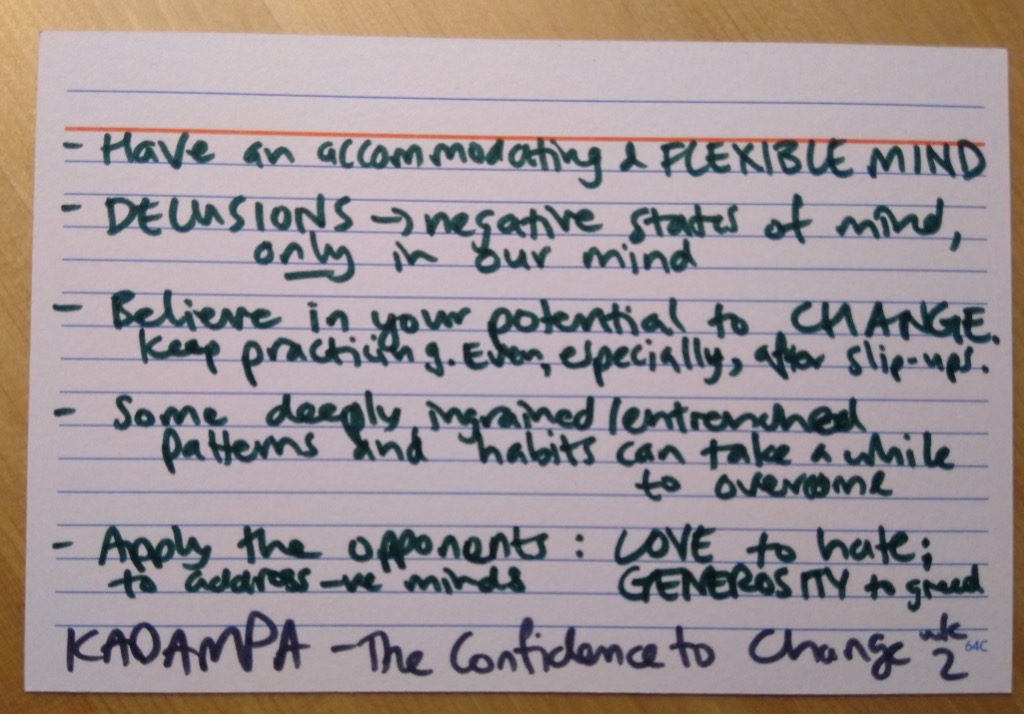 - Have an accommodating & FLEXIBLE MIND
- DELUSIONS → negative states of mind,
only in our mind
- Believe in your potential to CHANGE.
Keep practicing. Even, especially, after slip-ups.
- Some deeply ingrained/entrenched
patterns and habits can take a while
to overcome
- Apply the opponents : LOVE to hate;
to address -ve minds GENEROSITY to greed
KADAMPA - The Confidence to Change wk 2
64C